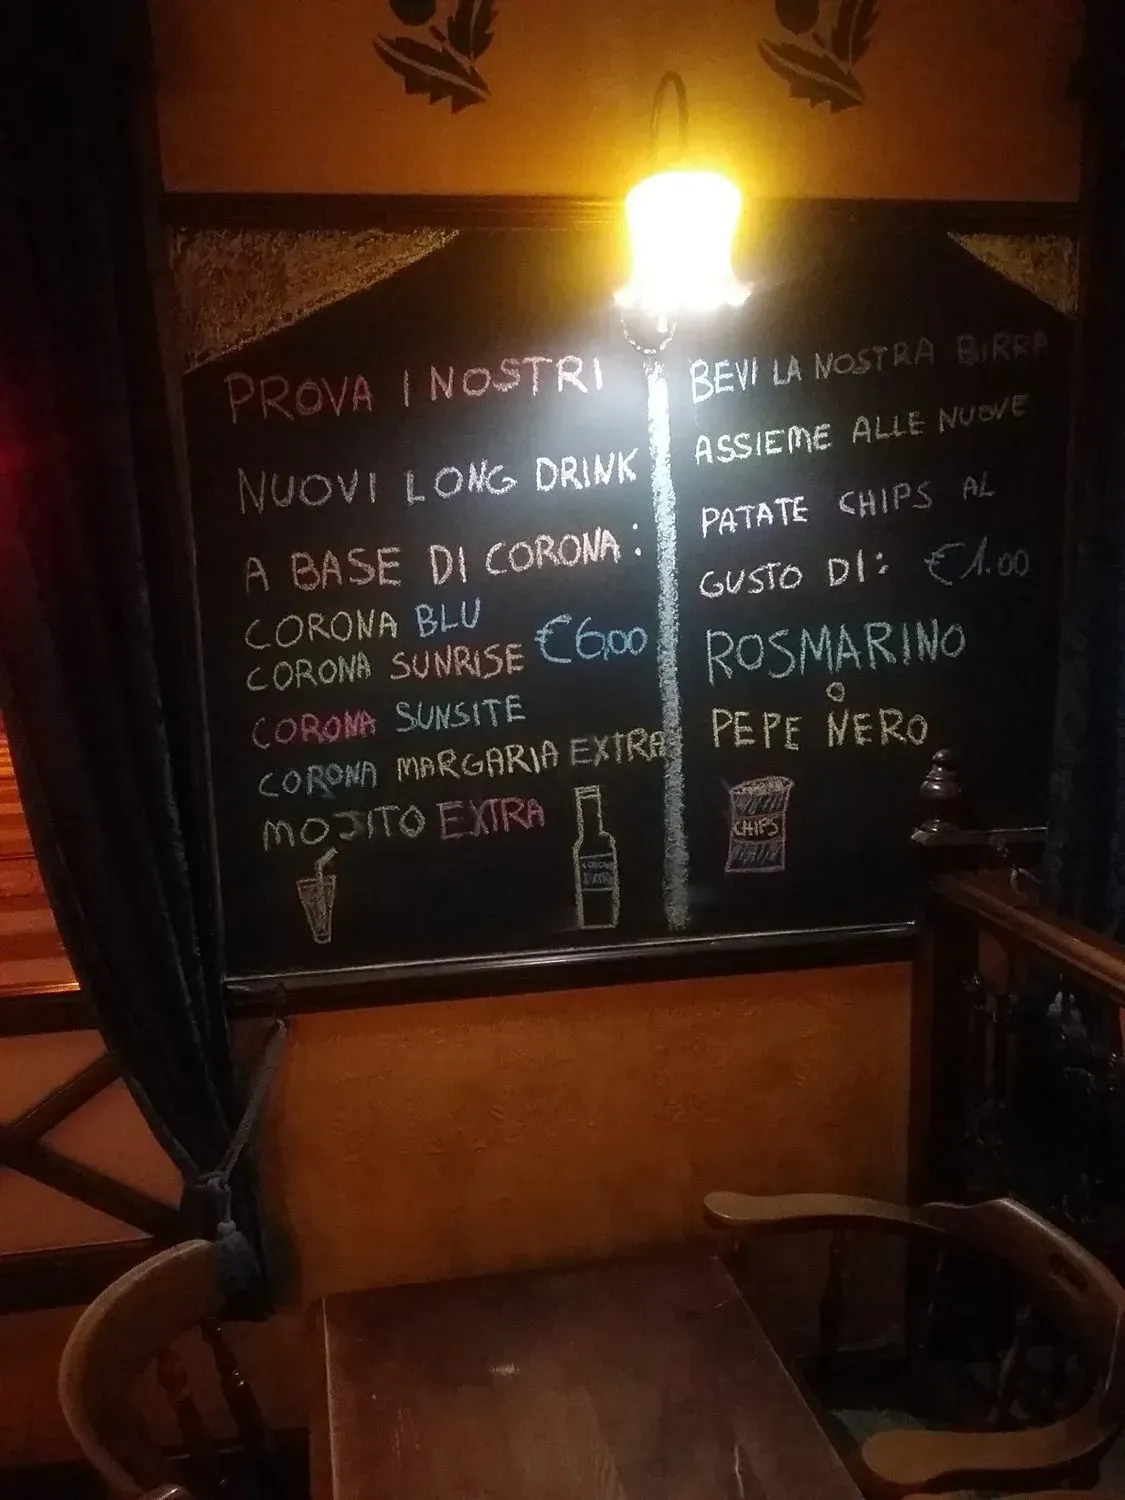 PROVA I NOSTRI
NUOVI LONG DRINK
A BASE DI CORONA:
CORONA BLU
€6,00
CORONA SUNRISE
CORONA SUNSITE
CORONA MARGARIA EXTRA
MOJITO EXTRA
CORONA
EXTRA
BEVI LA NOSTRA BIRRA
ASSIEME ALLE NUOVE
PATATE CHIPS AL
GUSTO DI: €1.00
ROSMARINO
O
PEPE NERO
CHIPS